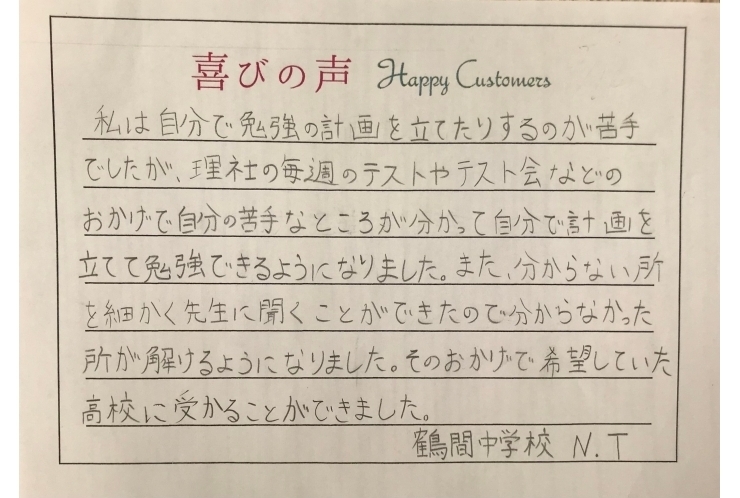 喜びの声 Happy Customers
私は自分で勉強の計画を立てたりするのが苦手
でしたが、理社の毎週のテストやテスト会などの
おかげで自分の苦手なところが分かって自分で計画を
立てて勉強できるようになりました。また、分からない所
を細かく先生に聞くことができたので分からなかった
所が解けるようになりました。そのおかげで希望していた
高校に受かることができました。
鶴間中学校 N.T